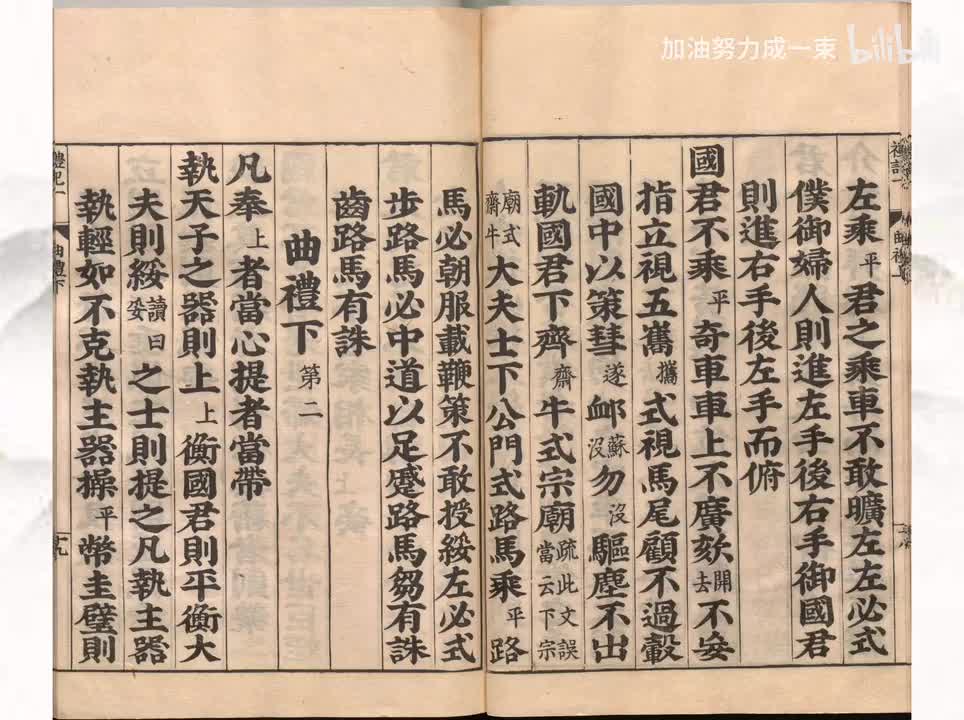 加油努力成一束 bilibili
左乘平君之乘車不敢曠左左必式
僕御婦人則進左手後右手御國君
則進右手後左手而俯
國君不乘平奇車車上不廣欬開去不妄
指立視五巂攜式視馬尾顧不過轂
國中以策彗遂卹蘇沒勿沒驅塵不出
軌國君下齊齋牛式宗廟疏此文誤當云下宗
廟式齋牛大夫士下公門式路馬乘平路
馬必朝服載鞭策不敢授綏左必式
步路馬必中道以足蹙路馬芻有誅
齒路馬有誅
曲禮下第二
凡奉上者當心提者當帶
執天子之器則上上衡國君則平衡大
夫則綏讀曰妥之士則提之凡執主器
執輕如不克執主器操平幣圭璧則
禮記一 曲禮下 十九